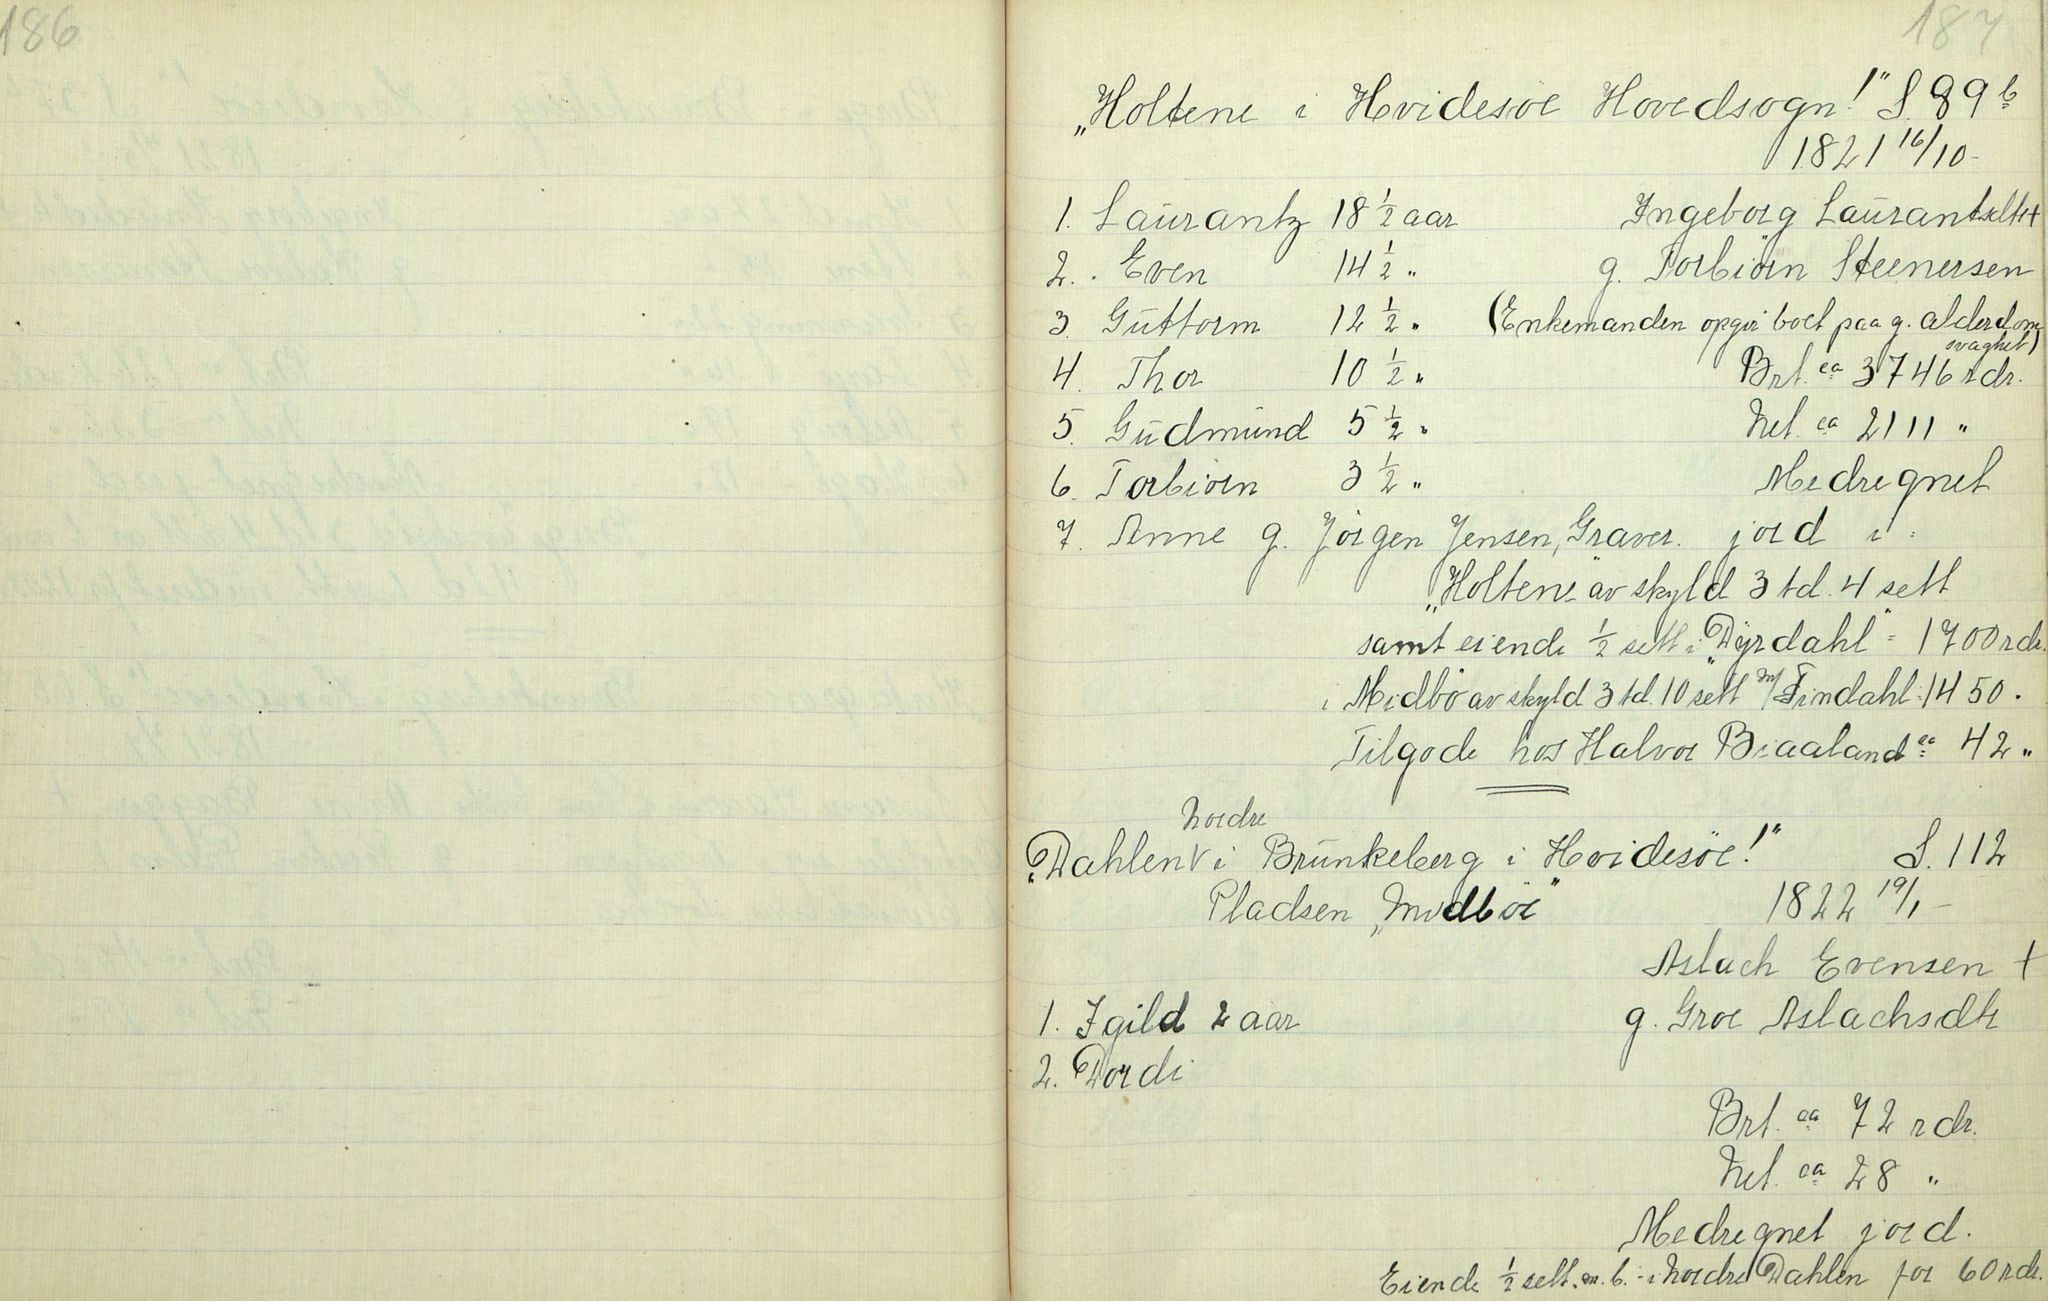 186
187
„Holtene i Hvidesöe Hovedsogn!" S. 89 b
1821 16/10-
1. Laurantz 18 ½ aar Ingeborg Laurantsdtr +
2. Even 14 ½ " g. Torbiörn Steenersen
3. Guttorm 12 ½ " (Enkemanden opgir boet paa g. alderdom
svaghet)
4. Thor 10 ½ " Brt. ca 3746 rdr.
5. Gudmund 5 ½ " Net. ca 2111 "
6. Torbiörn 3 ½ " Medregnet
7. Anne g. Jörgen Jensen, Graver. jord i:
„Holtene" av skyld 3 td. 4 sett
samt eiende ½ sett i „Dyrdahl" = 1700 rdr.
i Midbö av skyld 3 td. 10 sett m/ Findahl: 1450.
Tilgode hos Halvor Biaaland ca 42 "
nordre
„Dahlen V i Brunkeberg i Hvidesöe!" S. 112
Pladsen „Midböe" 1822 19/1-
Aslach Evensen +
1. Igild 2 aar g. Groe Aslachsdtr
2. Dordi
Brt. ca 72 rdr.
Net. ca 28 "
Medregnet jord.
Eiende ½ sett. m. b. i nordre Dahlen for 60 rdr.